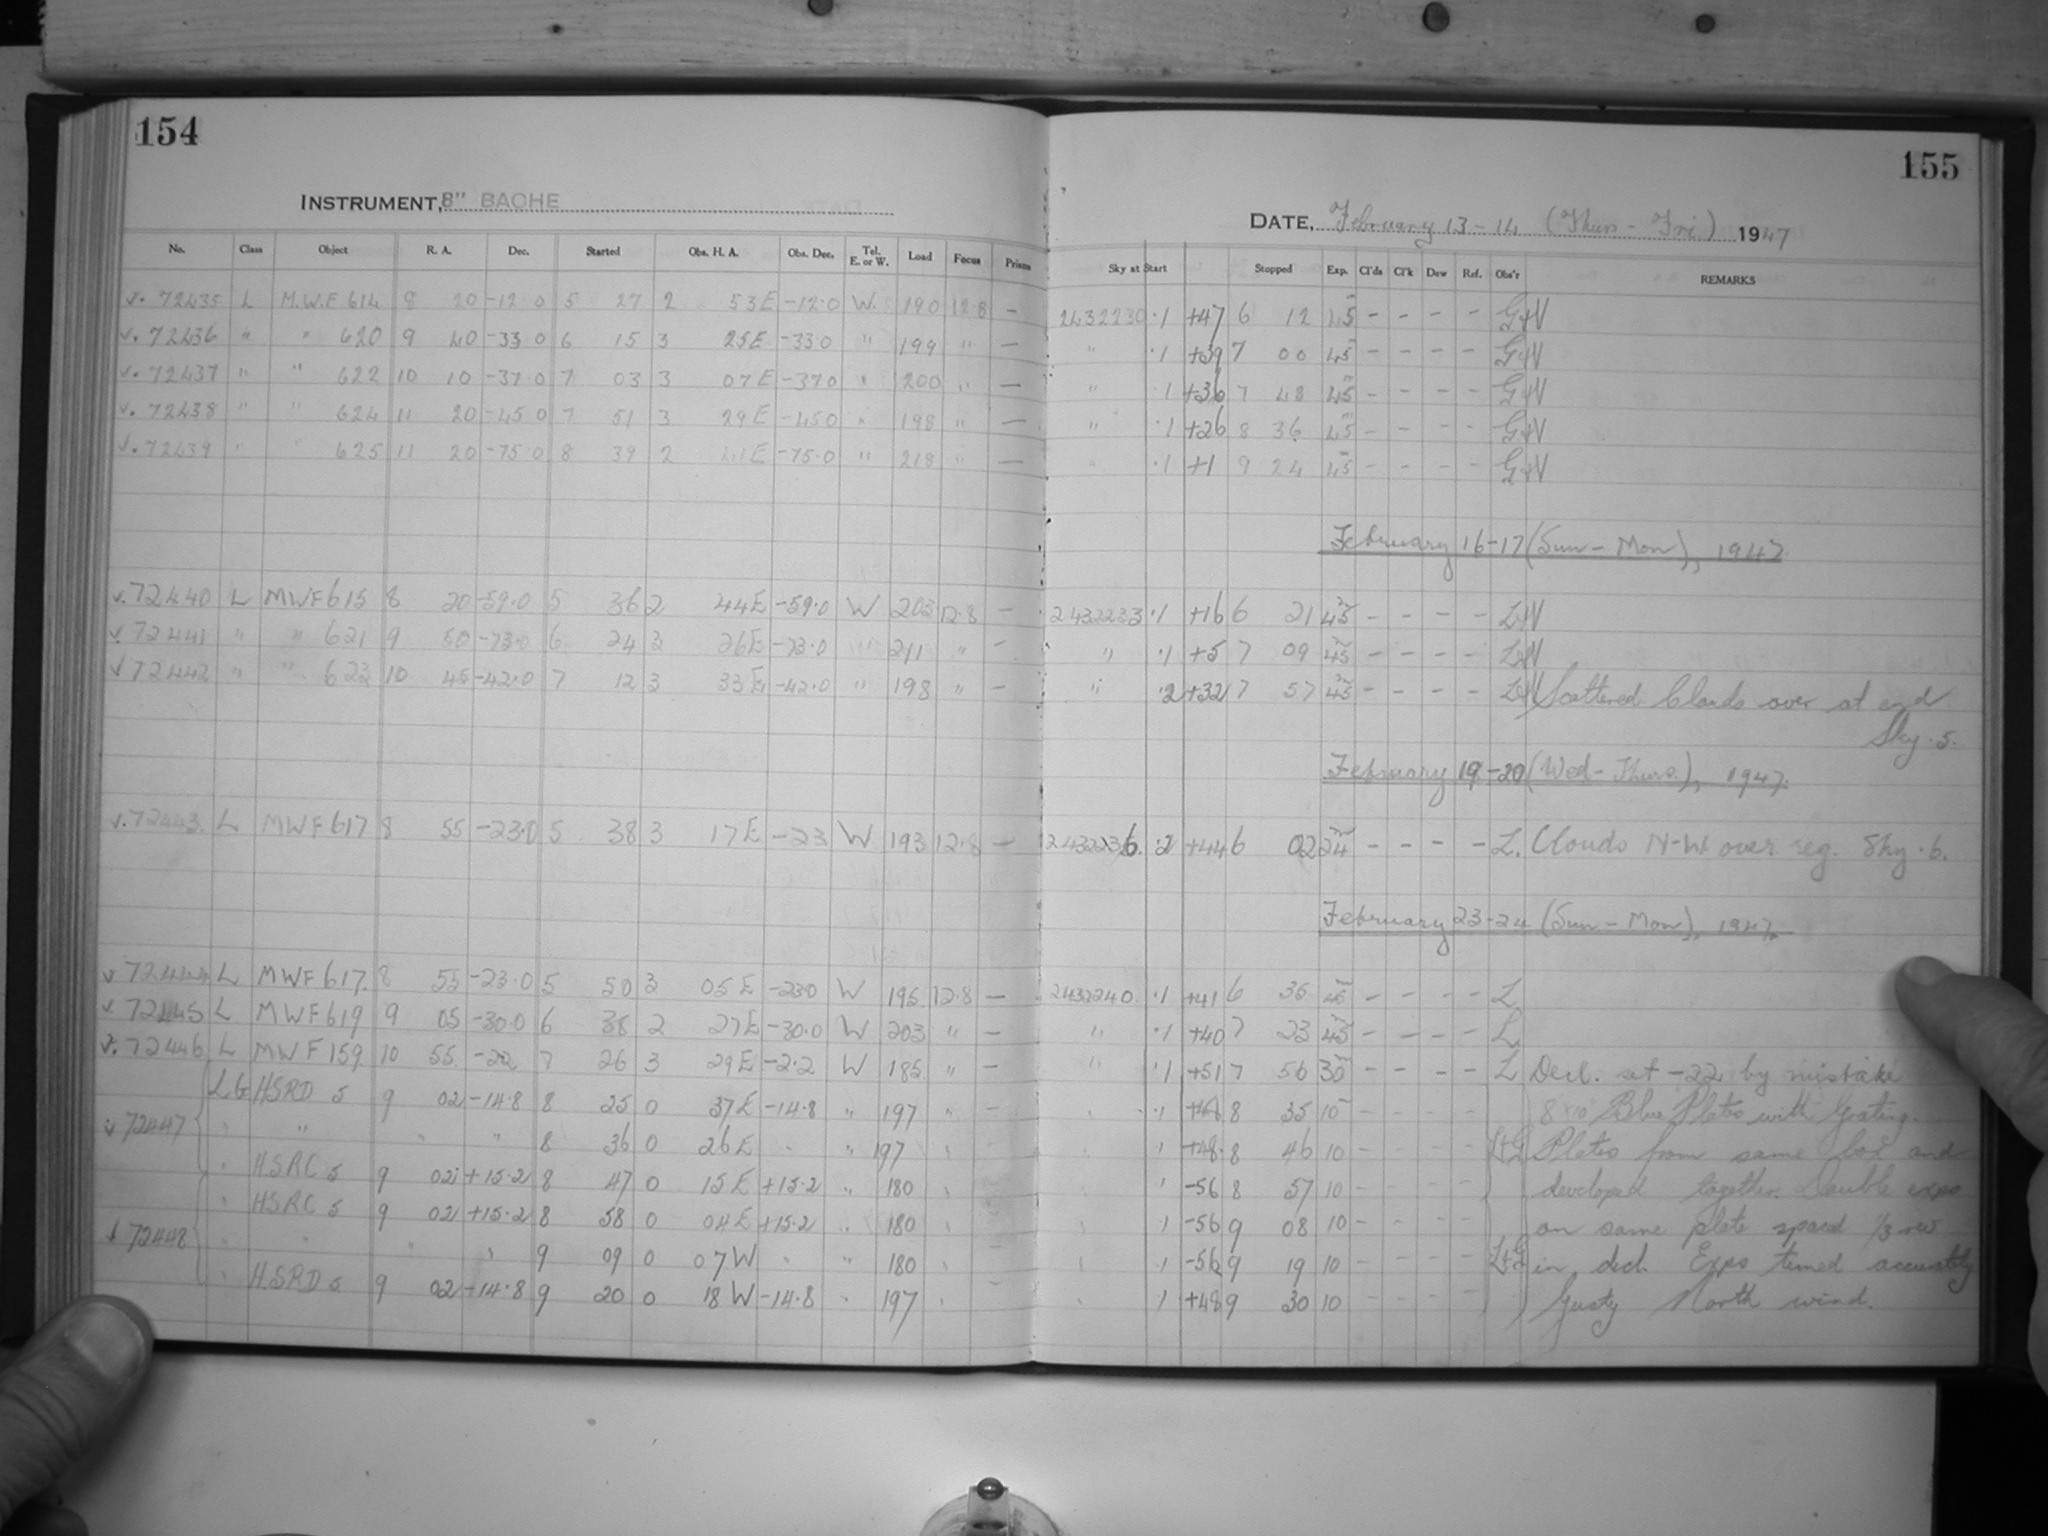 154
155
INSTRUMENT, 8" BACHE
DATE, February 13-14 (Thurs - Fri.) 1947
No. Class Object R. A. Dec. Started Obs. H. A. Obs. Dec. Tel. E. or W. Load Focus Prisms Sky at Start Stopped Exp. Cl'ds Cl'k Dew Ref. Obs'r REMARKS
v. 72435 L M.W.F 614 8 20 -12 0 5 27 2 53E -12.0 W. 190 12.8 — 2432230 .1 +47 6 12 45 - - - - G+V
v. 72436 " " 620 9 40 -33 0 6 15 3 25E -33.0 " 199 " — " .1 +39 7 00 45 - - - - G+V
v. 72437 " " 622 10 10 -37 0 7 03 3 07E -37.0 " 200 " — " .1 +36 7 48 45 - - - - G+V
v. 72438 " " 624 11 20 -45 0 7 51 3 29E -45.0 " 198 " — " .1 +26 8 36 45 - - - - G+V
v. 72439 " " 625 11 20 -75 0 8 39 2 41E -75.0 " 218 " — " .1 +1 9 24 45 - - - - G+V
February 16-17 (Sun - Mon), 1947.
v. 72440 L MWF 615 8 20 -59.0 5 36 2 44E -59.0 W 203 12.8 — 2432233 .1 +16 6 21 45 - - - - L+V
v. 72441 " " 621 9 50 -73.0 6 24 3 26E -73.0 " 211 " — " .1 +5 7 09 45 - - - - L+V
v 72442 " " 623 10 45 -42.0 7 12 3 33E -42.0 " 198 " — " .2 +32 7 57 45 - - - - L+V Scattered Clouds over at end
Sky .5.
February 19-20 (Wed - Thurs.), 1947.
v. 72443. L MWF 617 8 55 -23.0 5 38 3 17E -23 W 193 12.8 — 2432236. .2 +44 6 02 24 - - - - L. Clouds N-W over reg. Sky .6.
February 23-24 (Sun - Mon), 1947.
v 72444 L MWF 617. 8 55 -23.0 5 50 3 05E -23.0 W 195 12.8 — 2432240. .1 +41 6 35 45 - - - - L
v. 72445 L MWF 619 9 05 -30.0 6 38 2 27E -30.0 W 203 " — " .1 +40 7 23 45 - - - - L
v. 72446 L MWF 159. 10 55. -22 7 26 3 29E -2.2 W 185. " — " .1 +51 7 56 30 - - - - L Decl. set -22 by mistake
LG HSRD 5 9 02 -14.8 8 25 0 37E -14.8 " 197 " - .1 8 35 10 - - - - 8x10 Blue Plates with Grating.
v 72447 " " " " 8 36 0 26E " " 197 .1 +48. 8 46 10 - - - - L+G Plates from same box and
" HSRC 5 9 02 +15.2 8 47 0 15E +15.2 " 180 .1 -56 8 57 10 - - - - developed together. Double expo
" HSRC 5 9 02 +15.2 8 58 0 04E +15.2 " 180 .1 -56 9 08 10 - - - - on same plate spaced 1/3 rev
v 72448 " " " " 9 09 0 07W " " 180 .1 -56 9 19 10 - - - - L+G in decl. Expo timed accurately
" HSRD 5 9 02 -14.8 9 20 0 18W -14.8 " 197 .1 +48 9 30 10 - - - - Gusty North wind.